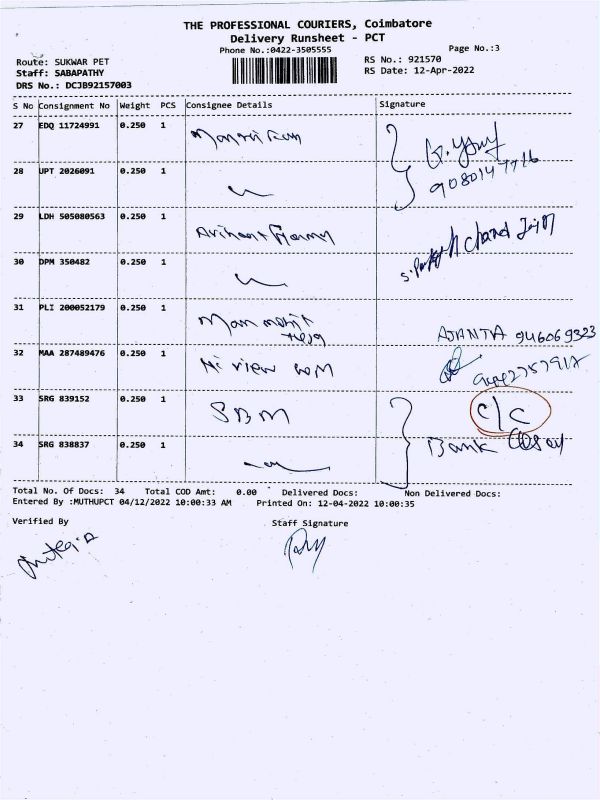 THE PROFESSIONAL COURIERS, Coimbatore
Delivery Runsheet - PCT
Phone No.:0422-3505555
Page No.:3
Route: SUKWAR PET
RS No.: 921570
Staff: SABAPATHY
RS Date: 12-Apr-2022
DRS No.: DCJB92157003
S No Consignment No Weight PCS Consignee Details Signature
27 EDQ 11724991 0.250 1
28 UPT 2026091 0.250 1
29 LDH 505080563 0.250 1 Arihant
Chand Jain
30 DPM 350482 0.250 1
31 PLI 200052179 0.250 1
AJANTA
32 MAA 287489476 0.250 1 Hi view
33 SRG 839152 0.250 1 SBM C/C
34 SRG 838837 0.250 1 Bank
Total No. Of Docs: 34 Total COD Amt: 0.00 Delivered Docs: Non Delivered Docs:
Entered By :MUTHUPCT 04/12/2022 10:00:33 AM Printed On: 12-04-2022 10:00:35
Verified By Staff Signature